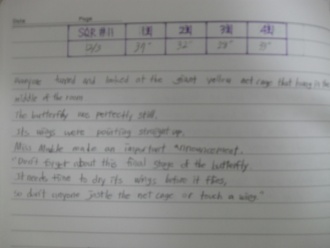 Date Page
SQR #11 1회 2회 3회 4회
39" 32" 28"
Everyone turned and looked at the giant yellow net cage that hung in the
middle of the room.
The butterfly was perfectly still.
Its wings were pointing straight up.
Miss Mable made an important announcement.
"Don't forget about this final stage of the butterfly.
It needs time to dry its wings before it flies,
so don't anyone jostle the net cage or touch a wing."